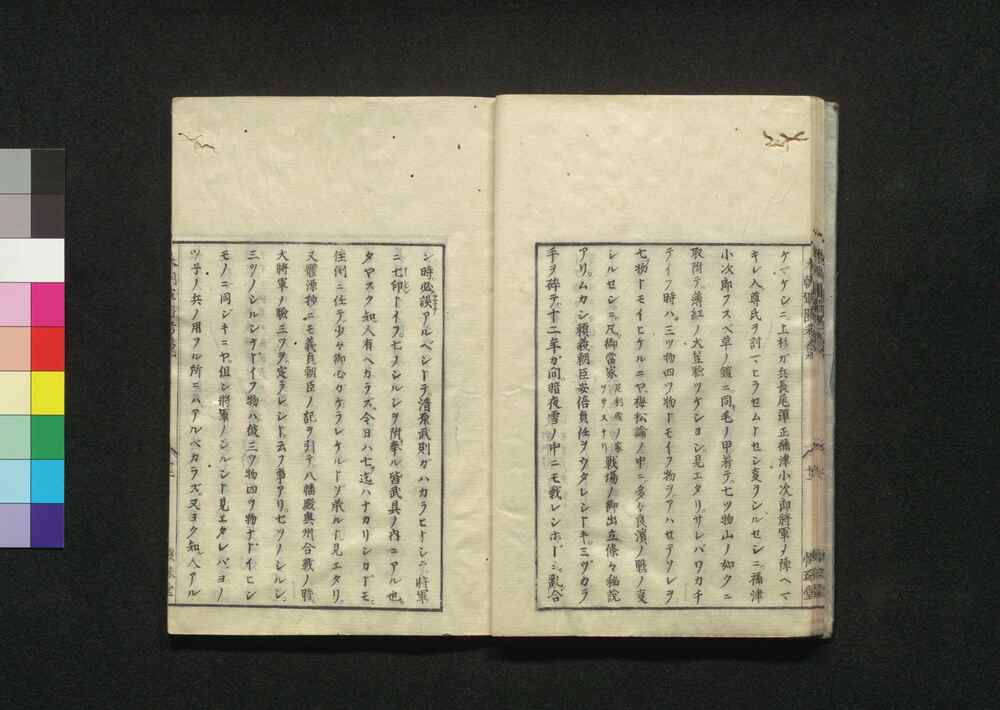 ケマケンニ上杉ガ兵長尾彈正祢津小次郎將軍ノ陣ヘマ
キレ入尊氏ヲ討マヒラセムトセシ変ヲシルセシニ祢津
小次郎フスベ革ノ鎧ニ同毛ノ甲著テ七ツ物山ノ如クニ
取附テ薄紅ノ大笠驗ツケシヨシ見エタリサレバワカチ
テイフ時ハ三ツ物四ツ物トモイフ物ヲアハセテソレヲ
七物トモイヒケルニヤ梅松論ノ中ニ多々良濱ノ戰ノ変
シルセシニ凡御當家足利殿ノ家ヲサスナリ戰場ノ御出立條々秘説
アリムカシ頼義朝臣安倍貞任ヲウタレシトキミヅカラ
手ヲ碎テ十二年ガ間暗夜雪ノ中ニモ戰レシホドニ亂合
シ時必誤アルベシトテ清原武則ガハカラヒトシテ將軍
ニ七印トイフ七ノシルシヲ附奉ル皆武具ノ内ニアル也
タヤスク知人有ヘカラズ今日ハ七迄ハナカリシカドモ
住例ニ任テ少々御心カケラレケルトゾ承ルト見エタリ
又鑑源抄ニモ義貞朝臣ノ記ヲ引テ八幡殿奥州合戰ノ時
大將軍ノ驗三ツヲ定ラレシト云フ事アリ七ツノシルシ
三ツノシルシナトイフ物ハ彼三ツ物四ツ物ナドイヒシ
モノニ同ジキニヤ但シ將軍ノシルシト見エタレバヨノ
ツ子ノ兵ノ用フル所ニハアルベカラズ又ヨク知人アル